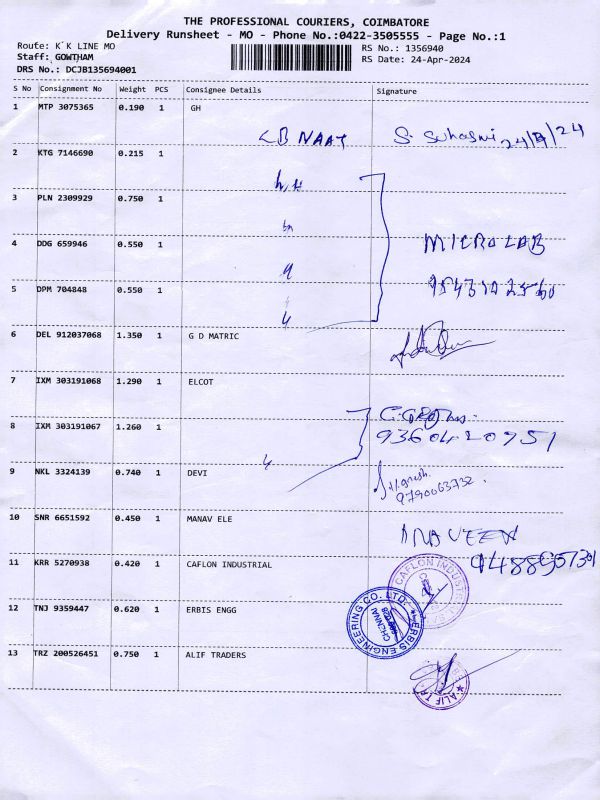 THE PROFESSIONAL COURIERS, COIMBATORE
Delivery Runsheet - MO - Phone No.:0422-3505555 - Page No.:1
Route: K K LINE MO
RS No.: 1356940
Staff: GOWTHAM
RS Date: 24-Apr-2024
DRS No.: DCJB135694001
S No Consignment No Weight PCS Consignee Details Signature
1 MTP 3075365 0.190 1 GH
NAAT S. Suhasni 24/4/24
2 KTG 7146690 0.215 1
3 PLN 2309929 0.750 1
4 DDG 659946 0.550 1 MICROLAB
5 DPM 704848 0.550 1
6 DEL 912037068 1.350 1 G D MATRIC
7 IXM 303191068 1.290 1 ELCOT
8 IXM 303191067 1.260 1 9360420951
9 NKL 3324139 0.740 1 DEVI
9790063732
10 SNR 6651592 0.450 1 MANAV ELE
NAVEEN
11 KRR 5270938 0.420 1 CAFLON INDUSTRIAL
CAFLON INDUST
12 TNJ 9359447 0.620 1 ERBIS ENGG
ERBIS ENGINEERING CO. LTD.
CHENNAI
13 TRZ 200526451 0.750 1 ALIF TRADERS
ALIF